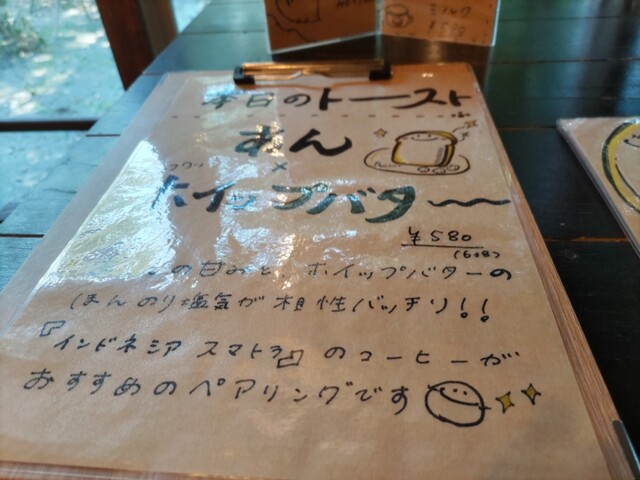 本日のトースト
あん
×
ホイップバター
¥580
の甘みと、ホイップバターの
ほんのり塩気が相性バッチリ!!
『インドネシア スマトラ』のコーヒーが
おすすめのペアリングです